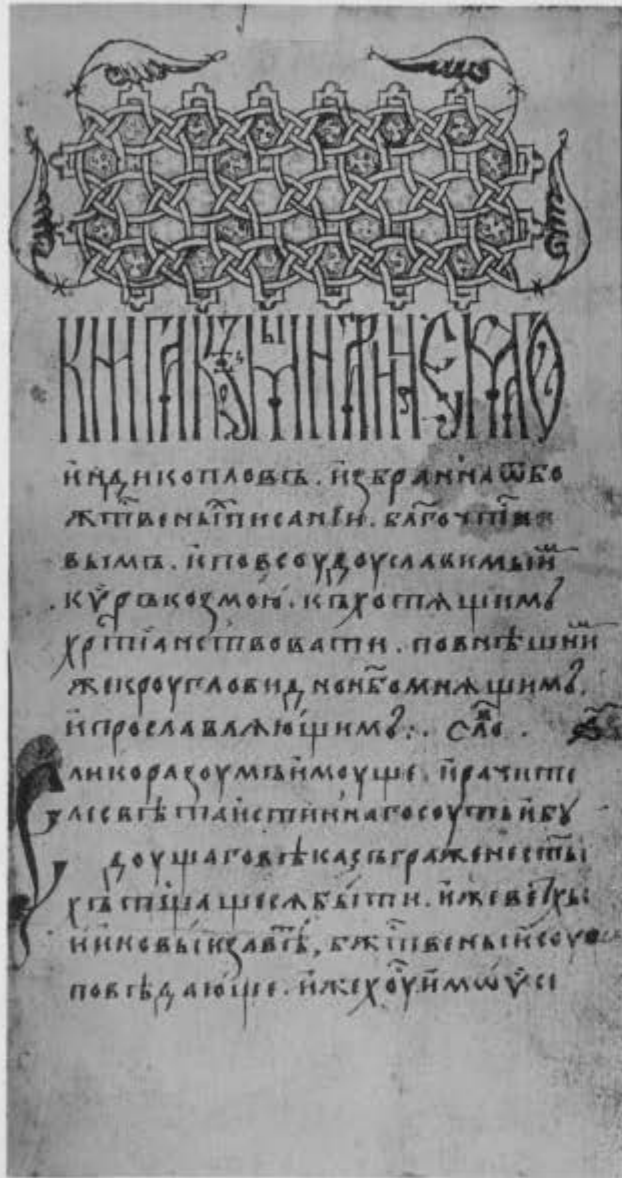 КНИГА КꙊЗЪМЫ НАРИЦАЕМАГО
и҆ндикопловъ. и҆збранна ѿ бо
жтⷭ҇веныⷯ писанїи. блгⷭ҇очтⷭ҇и
вымъ. и҆ повсоудоу славимыⷨи
кѵ҆ръ козмою҆. къ хотѧщимъ
хрⷭ҇тїанствовати. повнѣшниⷨ
же кроугловидно нб҃о мнѧщимъ.
и҆ прославлѧю҆щимъ:. слоⷡ҇.
Єлико разоумъ и҆моуще. и҆ рачите
ліе свѣта и҆стиннаго соуть и҆ бꙋ
доущаго вѣка съгражене ст҃ы
хъ тщащесѧ бы́ти. и҆же веⷮхы
и҆ и҆ новыи завѣⷮ, бжтⷭ҇веныи соуще
повѣдающе. и҆же хоⷭ҇у и҆ мѡѷсе